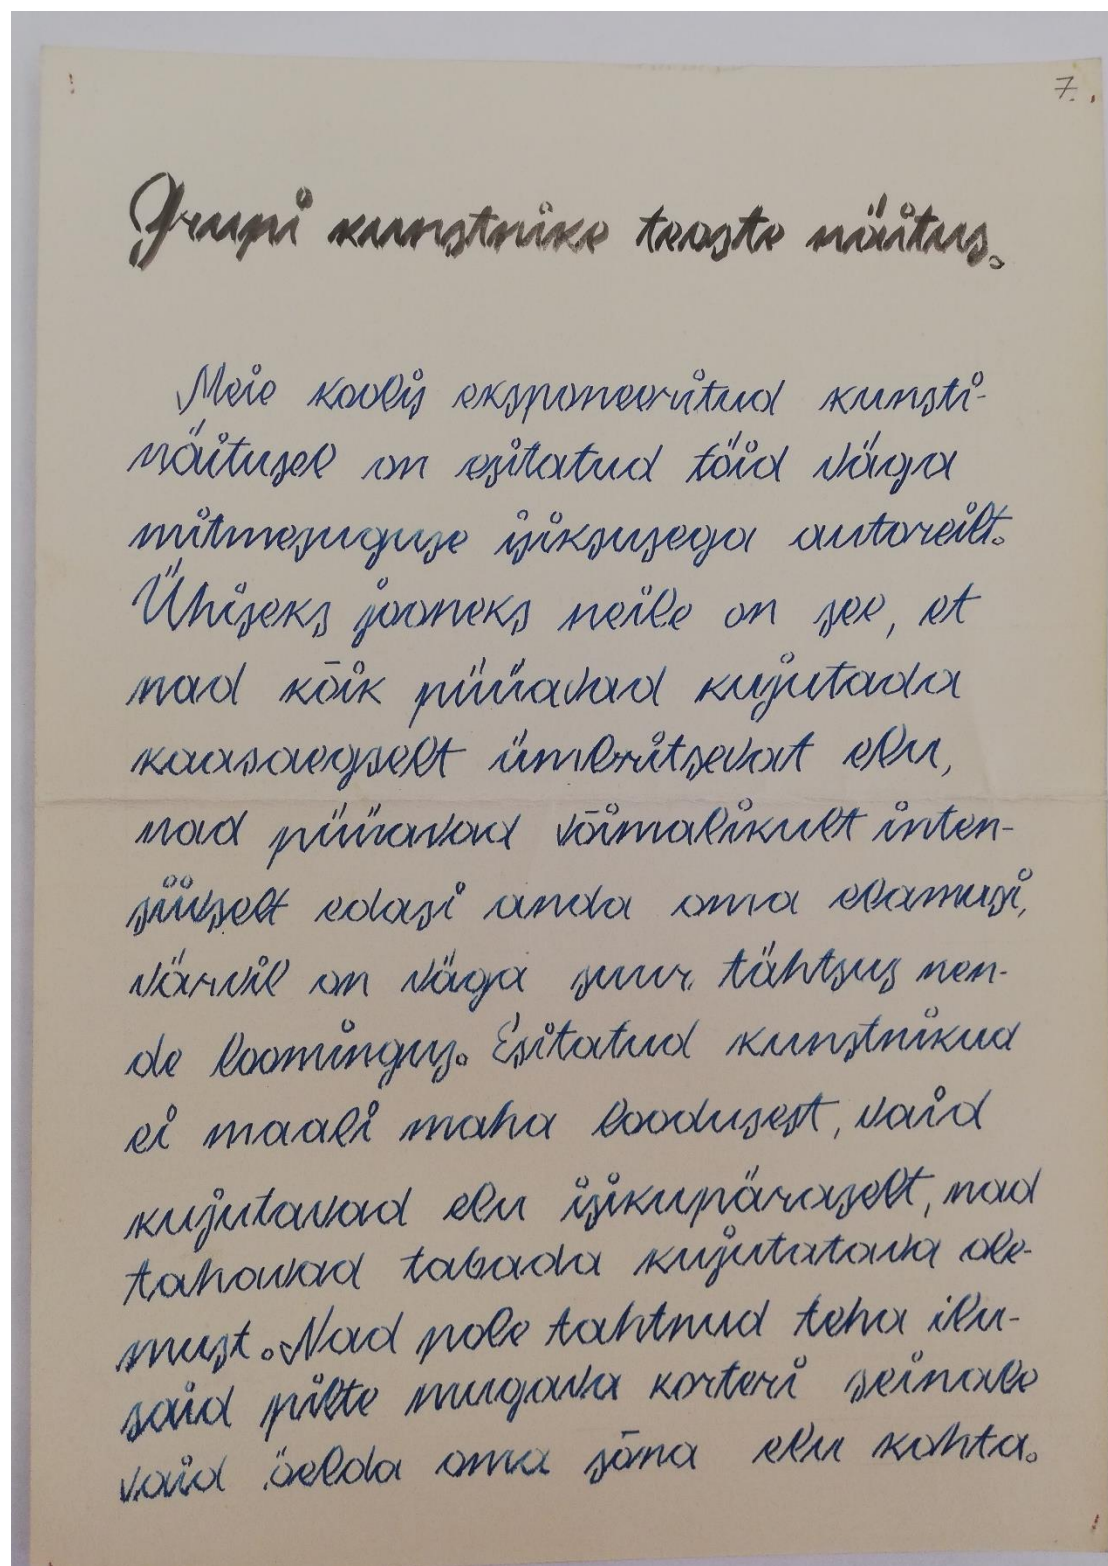 7.
Grupi kunstnike teoste näitus.
Meie koolis eksponeeritud kunsti-
näitusel on esitatud töid väga
mitmesuguse isiksusega autoreilt.
Ühiseks jooneks neile on see, et
nad kõik püüavad kujutada
kaasaegselt ümbritsevat elu,
nad püüavad võimalikult inten-
siivselt edasi anda oma elamusi,
värvil on väga suur tähtsus nen-
de loomingus. Esitatud kunstnikud
ei maali maha loodusest, vaid
kujutavad elu isikupäraselt, nad
tahavad tabada kujutatava ole-
must. Nad pole tahtnud teha ilu-
said pilte mugava korteri seinale
vaid öelda oma sõna elu kohta.